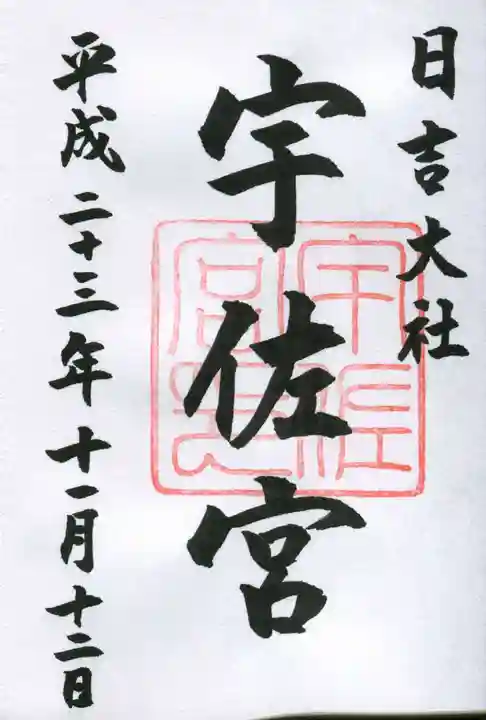 日吉大社
宇佐宮
宇佐宮之印
平成二十三年十一月十二日